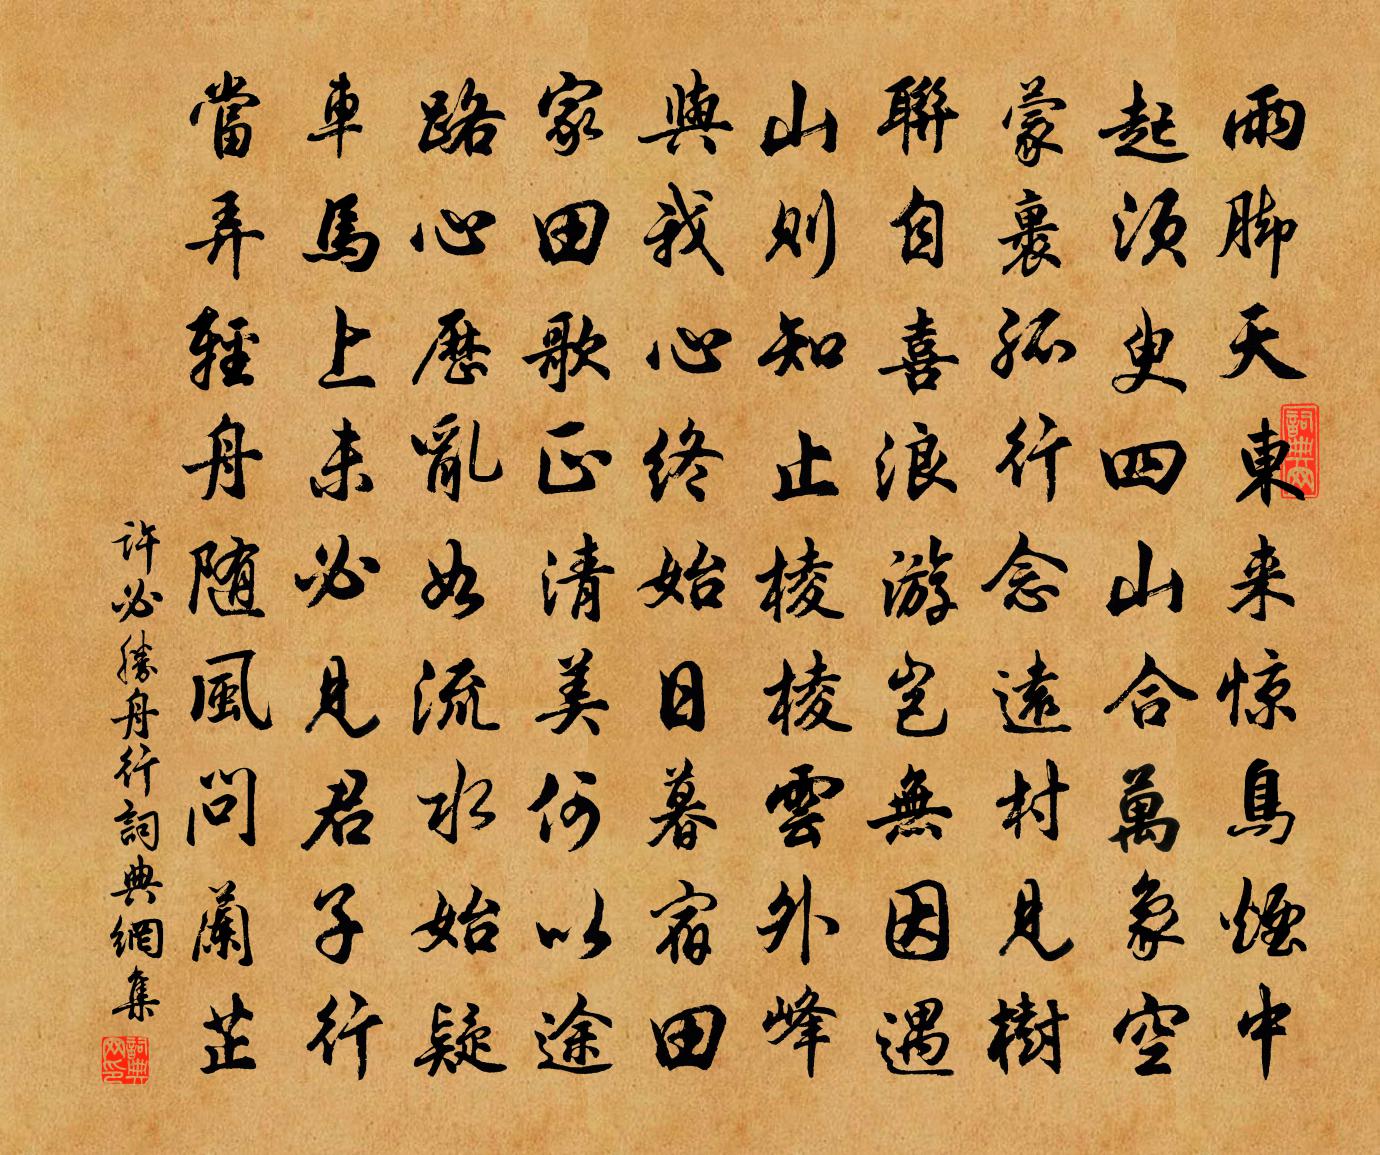 雨脚天東来惊鳥煙中
起須臾四山合萬象空
蒙裹孤行念遠村見樹
聯自喜浪游岂無因遇
山則知止棱棱雲外峰
與我心終始日暮宿田
家田歌正清美何以途
路心歷亂如流水始疑
車馬上未必見君子行
當弄輕舟随風問蘭芷
许必勝舟行詞典網集
詞典网
詞典网印